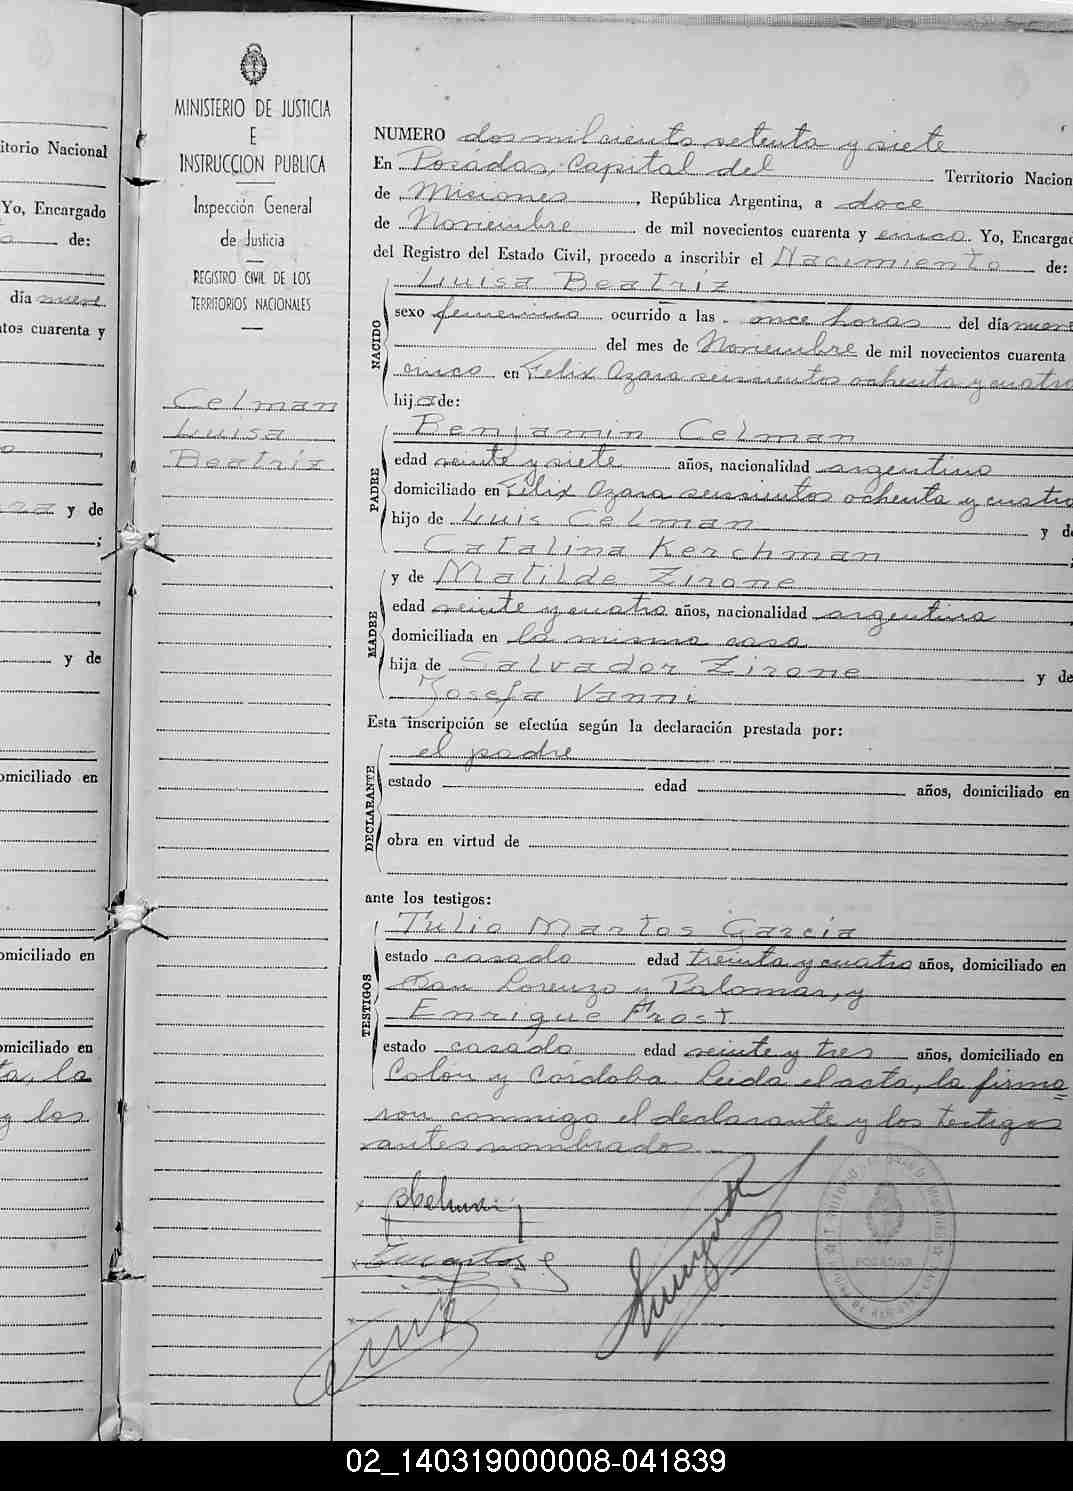 itorio Nacional
Yo, Encargado
de:
día nueve
tos cuarenta y
y de
;
y de
omiciliado en
omiciliado en
omiciliado en
ta, la
y los
MINISTERIO DE JUSTICIA
E
INSTRUCCION PUBLICA
Inspección General
de Justicia
REGISTRO CIVIL DE LOS
TERRITORIOS NACIONALES
Celman
Luisa
Beatriz
NUMERO dos mil ciento setenta y siete
En Posadas, Capital del Territorio Nacion
de Misiones, República Argentina, a doce
de Noviembre de mil novecientos cuarenta y cinco. Yo, Encargad
del Registro del Estado Civil, procedo a inscribir el Nacimiento de:
NACIDO
Luisa Beatriz
sexo femenino ocurrido a las once horas del día nueve
del mes de Noviembre de mil novecientos cuarenta
cinco en Felix Azara seiscientos ochenta y cuatro
hija de:
PADRE
Benjamin Celman
edad veinte y siete años, nacionalidad argentino
domiciliado en Felix Azara seiscientos ochenta y cuatro
hijo de Luis Celman y de
Catalina Kerchman ;
MADRE
y de Matilde Zirone
edad veinte y cuatro años, nacionalidad argentina
domiciliada en la misma casa
hija de Salvador Zirone y de
Josefa Vanni
Esta inscripción se efectúa según la declaración prestada por:
DECLARANTE
el padre
estado edad años, domiciliado en
obra en virtud de
ante los testigos:
TESTIGOS
Tulio Martos García
estado casado edad treinta y cuatro años, domiciliado en
San Lorenzo y Palomar, y
Enrique Frost
estado casado edad veinte y tres años, domiciliado en
Colón y Córdoba. Leída el acta, la firma
ron conmigo el declarante y los testigos
antes nombrados.
BCelman
TMartos G
POSADAS
02_140319000008-041839